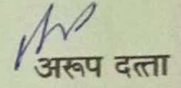 अरूप दत्ता